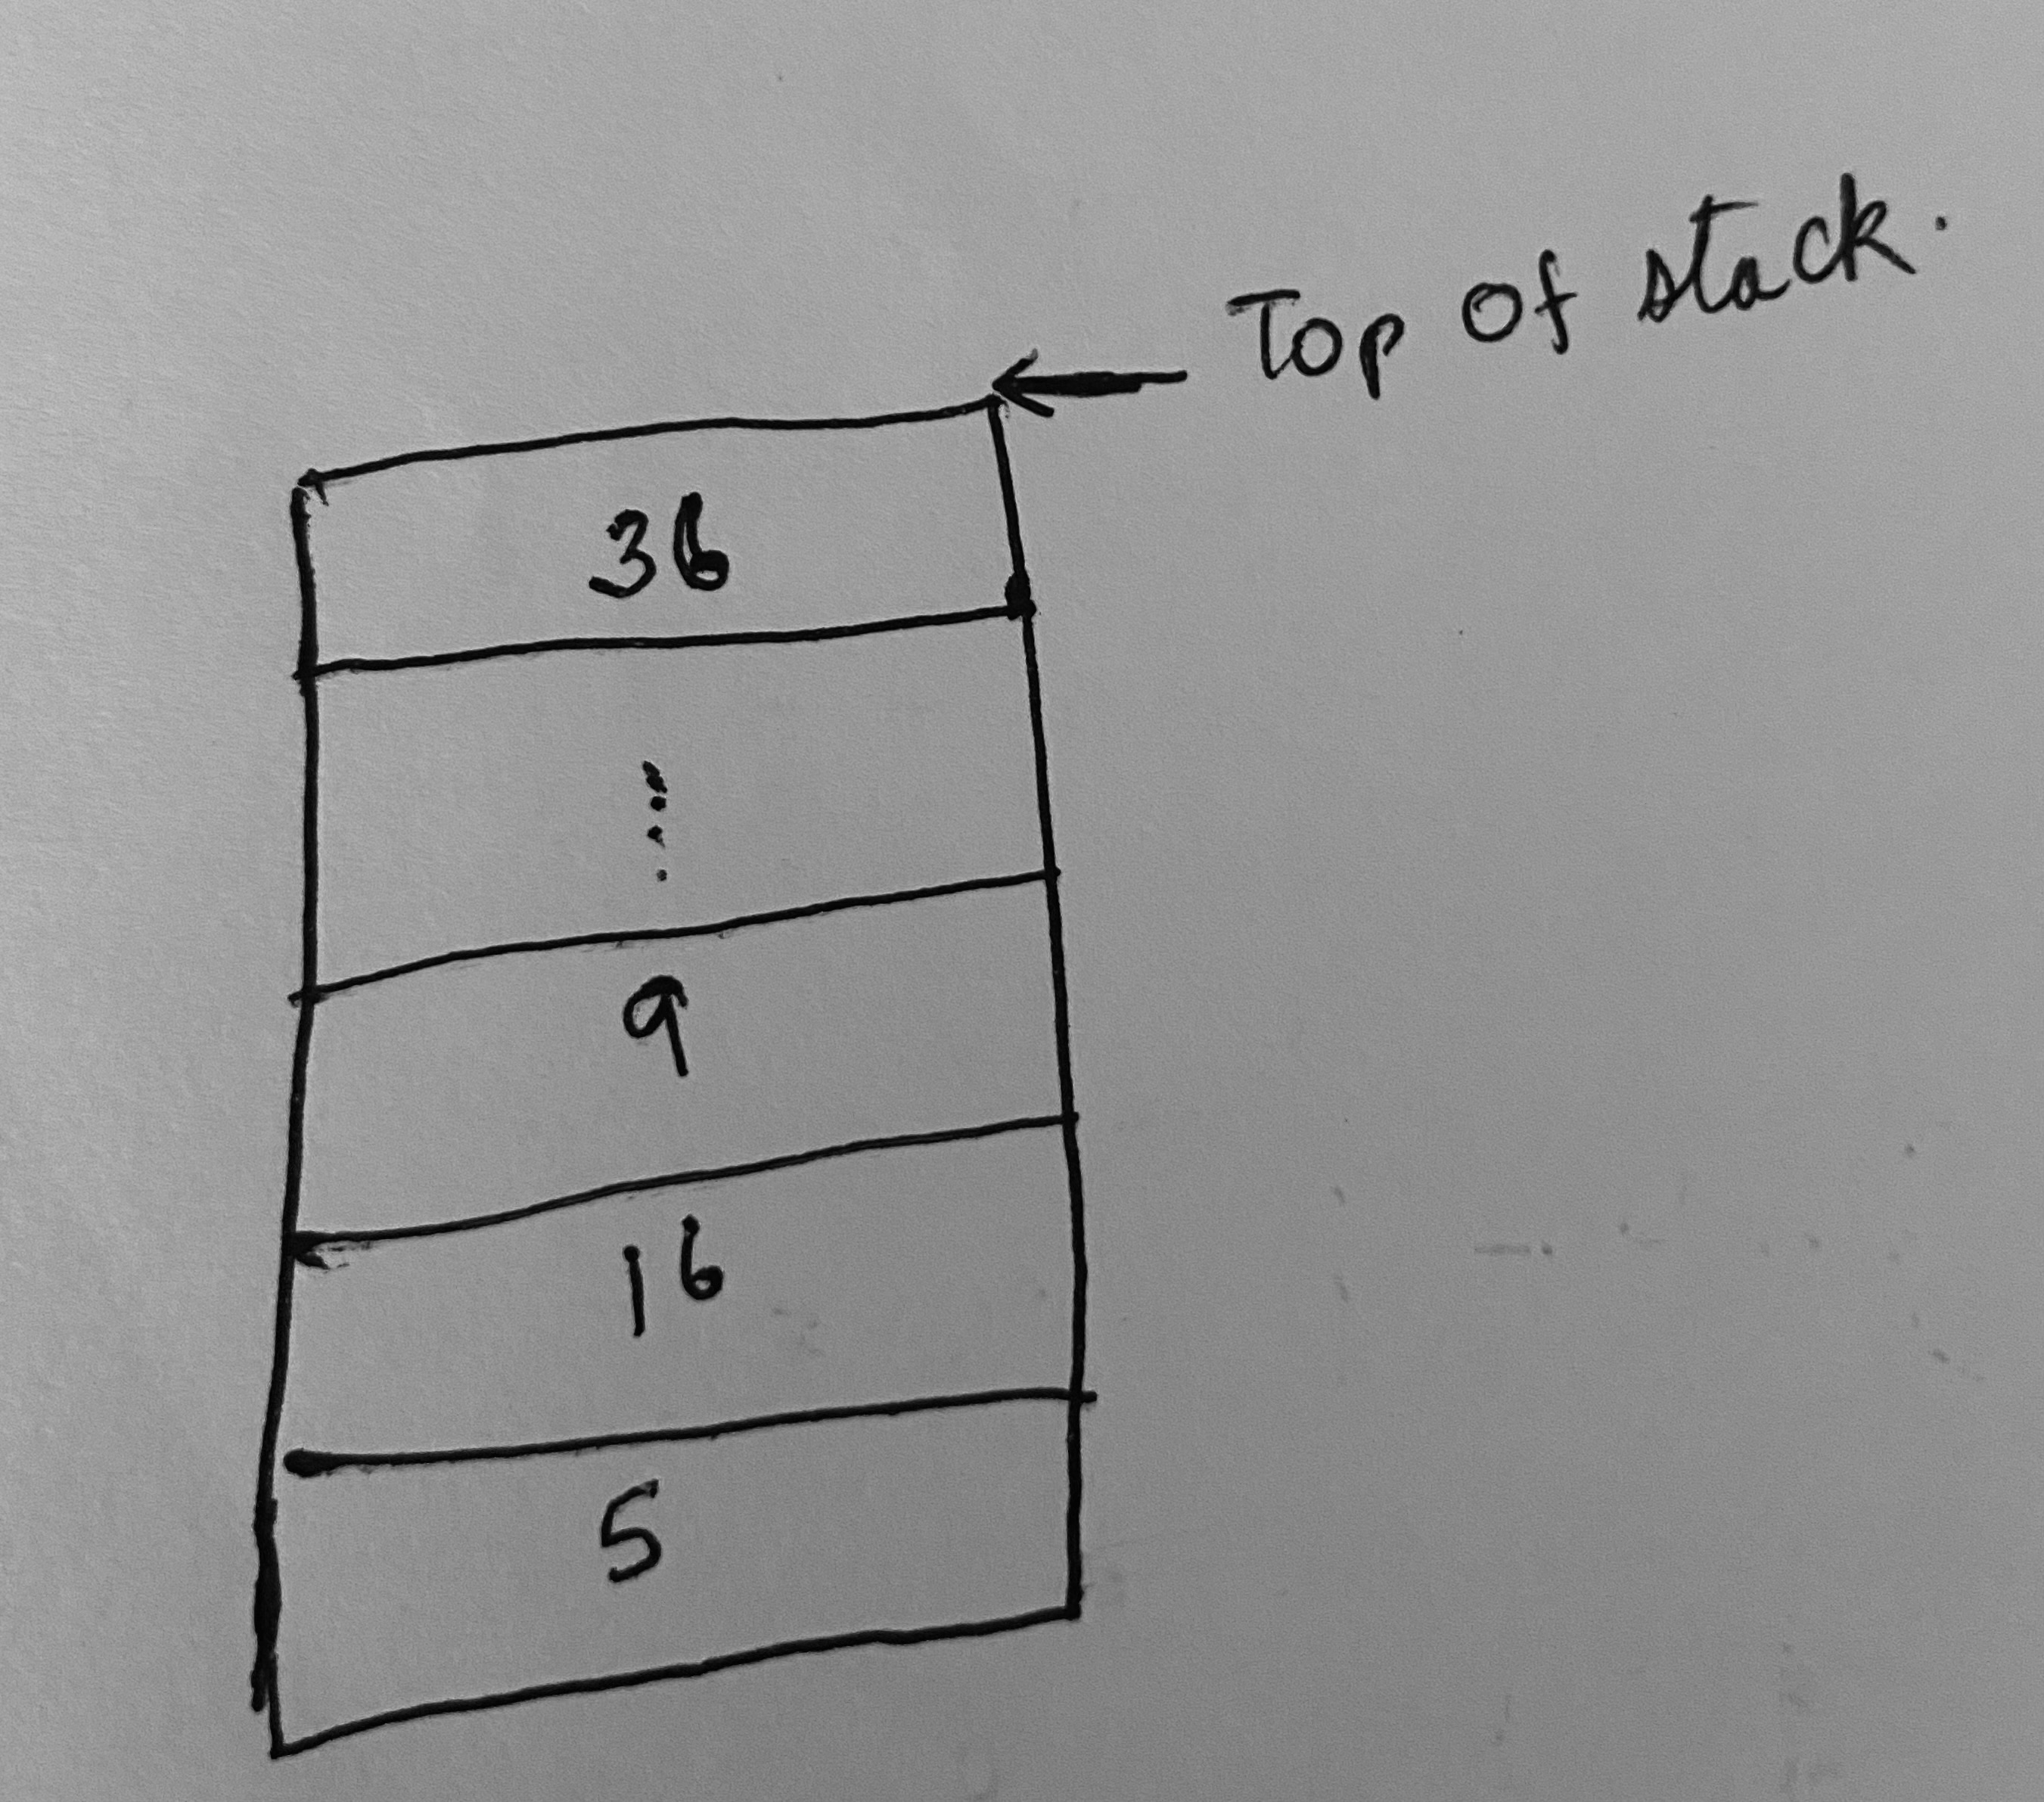 Top of stack.
36
⋮
9
16
5